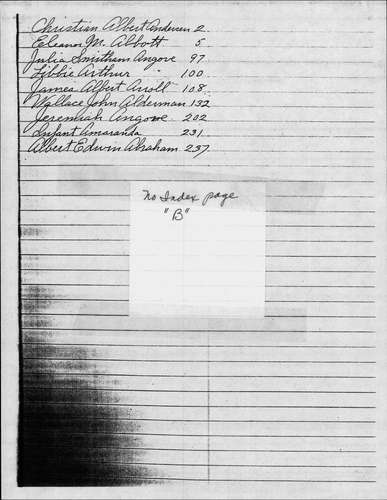 Christian Albert Andersen 2
Eleanor M. Abbott 5
Julia Smitham Angove 97
Libbie Arthur 100
James Albert Aroll 108
Wallace John Alderman 132
Jeremiah Angove 202
Infant Amaranda 231
Albert Edwin Abraham 237
No Index page
"B"